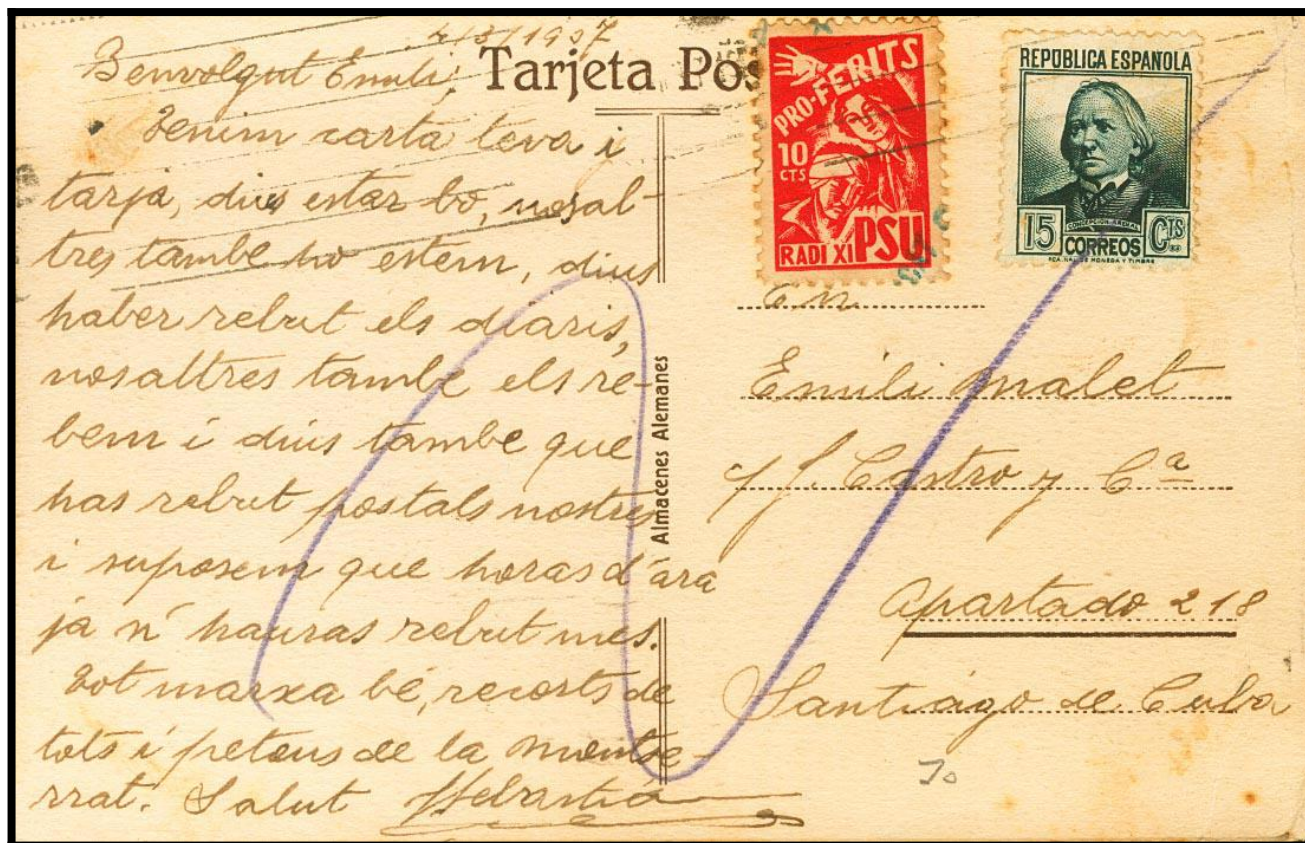 Tarjeta Pos
Benvolgut Emili,
Tenim carta teva i
tarja, dius estar bo, nosal-
tres tambe ho estem, dius
haber rebut els diaris,
nosaltres tambe els re-
bem i dius tambe que
has rebut postals nostres
i suposem que horas d'ara
ja n' hauras rebut mes.
Tot marxa bé, recorts de
tots i petons de la Montse-
rrat. Salut Sebastià
Almacenes Alemanes
PRO-FERITS
10
CTS
RADI XI PSU
REPÚBLICA ESPAÑOLA
CONCEPCION ARENAL
15 CORREOS CTS
FCA. NAL. DE MONEDA Y TIMBRE
En
Emili Malet
c/ J. Castro y Cª
Apartado 218
Santiago de Cuba